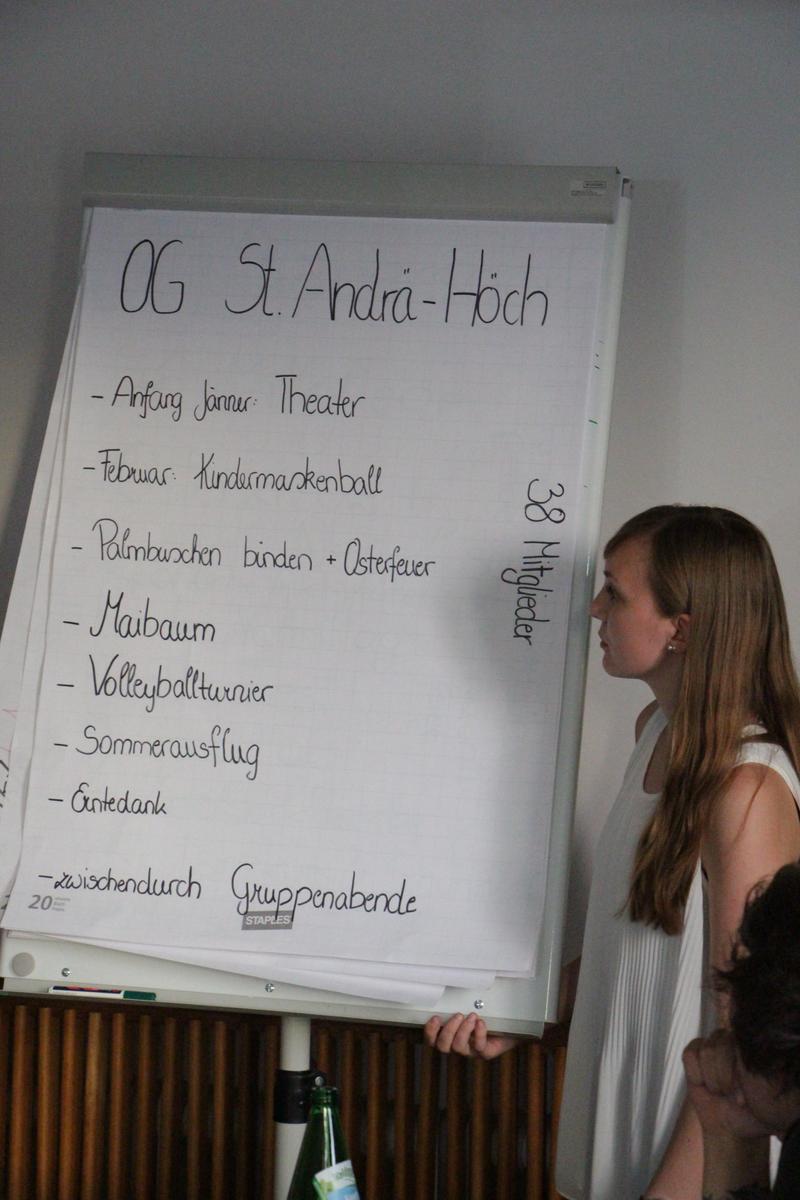 OG St. Andrä-Höch
- Anfang Jänner: Theater
- Februar: Kindermaskenball
- Palmbuschen binden + Osterfeuer
- Maibaum
- Volleyballturnier
- Sommerausflug
- Erntedank
- zwischendurch Gruppenabende
38 Mitglieder
20
STAPLES